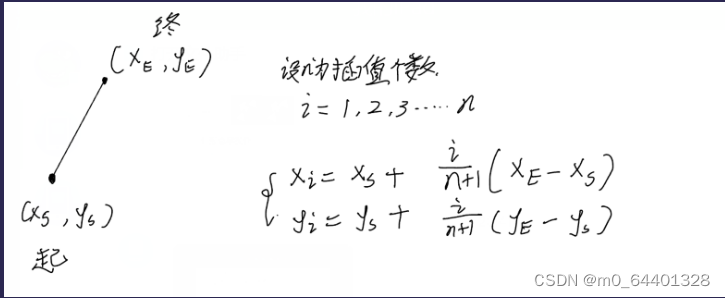 终
(x_E, y_E)
设n为插值个数,
i = 1, 2, 3 ..... n
x_i = x_s + i/(n+1) (x_E - x_s)
y_i = y_s + i/(n+1) (y_E - y_s)
(x_s, y_s)
起
CSDN @m0_64401328